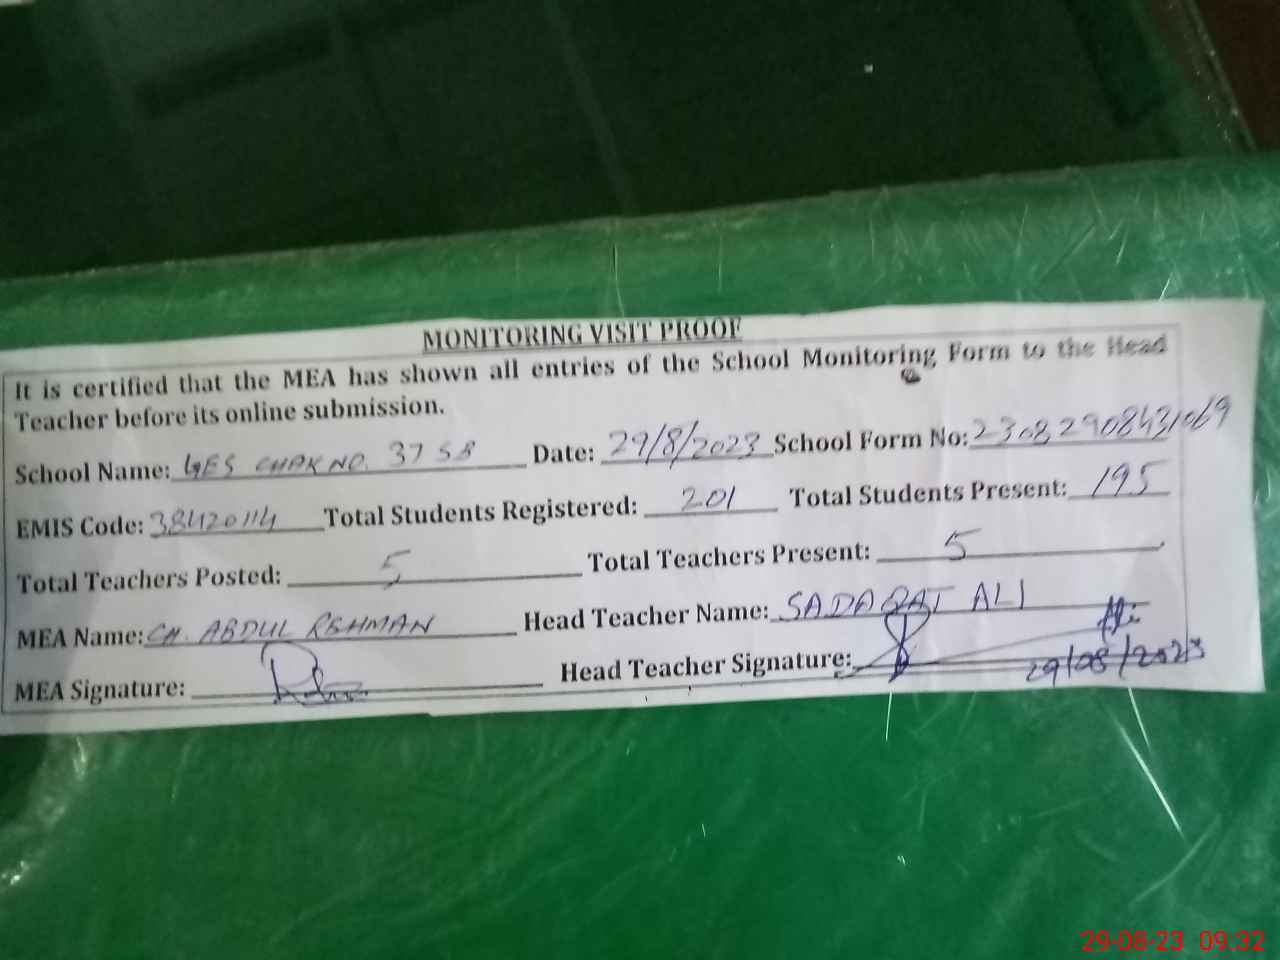 MONITORING VISIT PROOF
It is certified that the MEA has shown all entries of the School Monitoring Form to the Head
Teacher before its online submission.
School Name: GES CHAK NO. 37 SB Date: 29/8/2023 School Form No: 23082908431069
EMIS Code: 38420114 Total Students Registered: 201 Total Students Present: 195
Total Teachers Posted: 5 Total Teachers Present: 5
MEA Name: CH. ABDUL REHMAN Head Teacher Name: SADAQAT ALI
MEA Signature: Head Teacher Signature: 29/08/2023
29-08-23 09:32